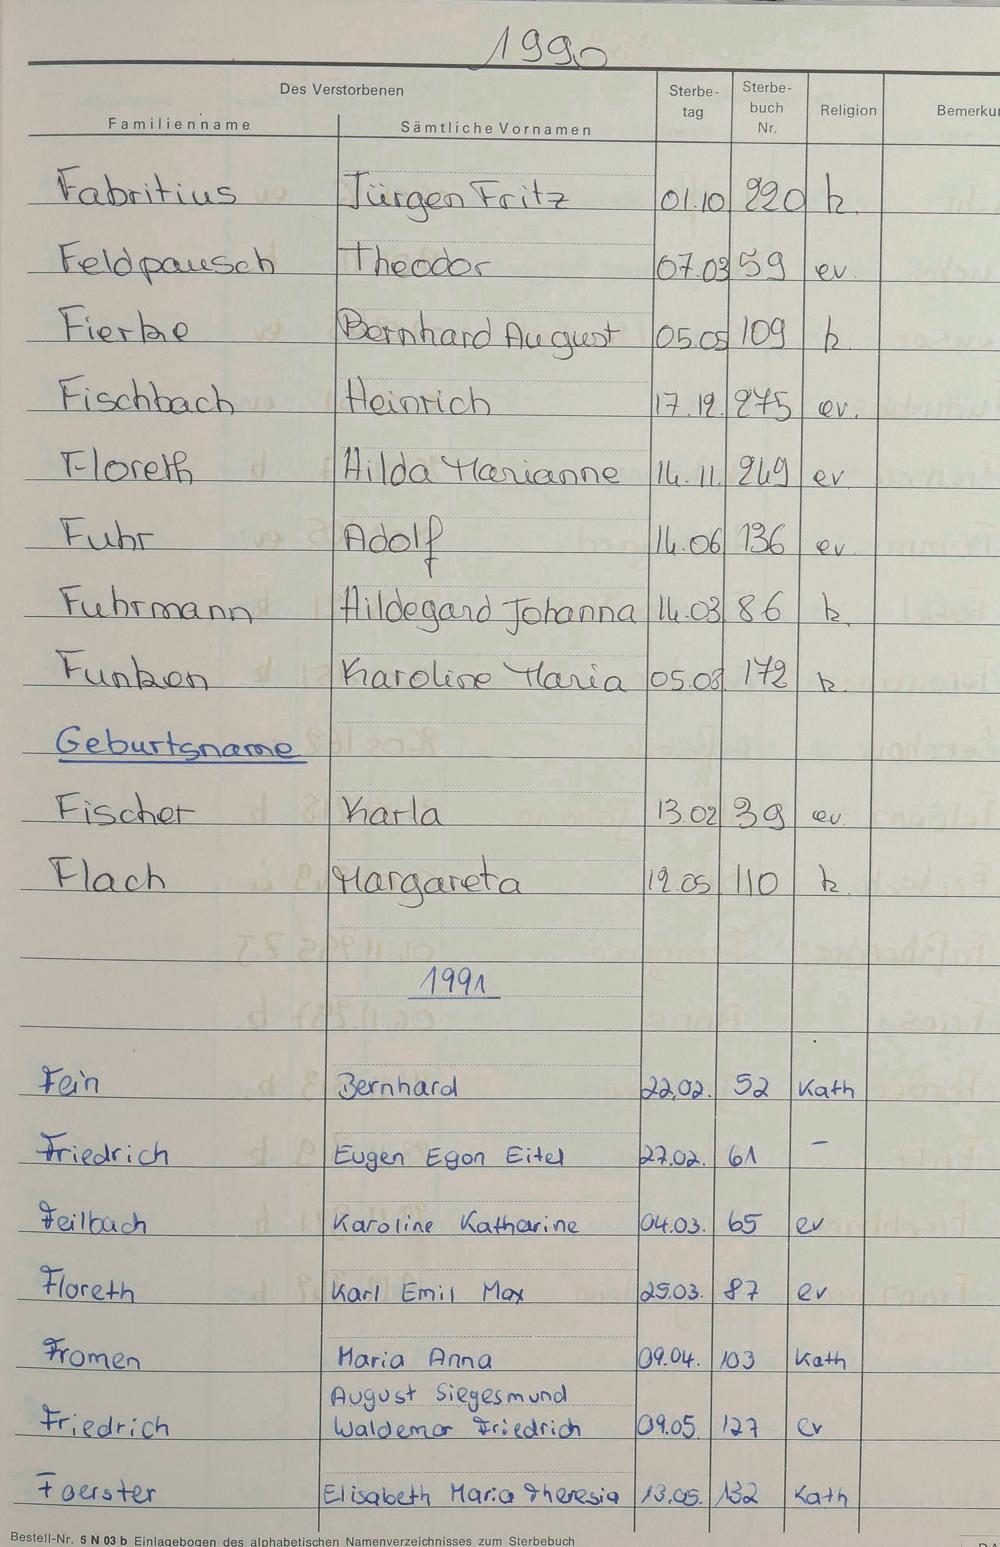 1990
Des Verstorbenen Sterbe- Sterbe-
tag buch Religion
Familienname Sämtliche Vornamen Nr.
Fabritius Jürgen Fritz 01.10 220 k.
Feldpausch Theodor 07.03 59 ev.
Fierke Bernhard August 05.05 109 k.
Fischbach Heinrich 17.12. 275 ev.
Floreth Hilda Marianne 14.11. 249 ev
Fuhr Adolf 14.06 136 ev.
Fuhrmann Hildegard Johanna 14.03 86 k.
Funken Karoline Maria 05.08 172 k.
Geburtsname
Fischer Karla 13.02 39 ev.
Flach Margareta 12.05 110 k.
1991
Fein Bernhard 22.02. 52 Kath
Friedrich Eugen Egon Eitel 27.02. 61 –
Feilbach Karoline Katharine 04.03. 65 ev
Floreth Karl Emil Max 25.03. 87 ev
Fromen Maria Anna 09.04. 103 Kath
August Siegesmund
Friedrich Waldemar Friedrich 09.05. 127 ev
Foerster Elisabeth Maria Theresia 13.05. 132 Kath
Bestell-Nr. 5 N 03 b Einlagebogen des alphabetischen Namenverzeichnisses zum Sterbebuch